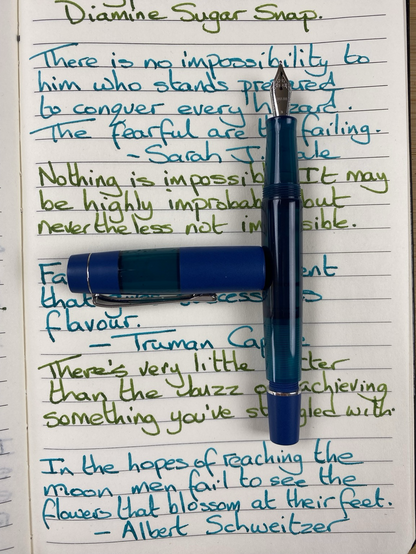 Diamine Sugar Snap.
There is no impossibility to
him who stands prepared
to conquer every hazard.
The fearful are the failing.
- Sarah J. Hale
Nothing is impossible. It may
be highly improbable but
nevertheless not impossible.
that success its
flavour.
- Truman Capote
There's very little better
than the buzz of achieving
something you've struggled with.
In the hopes of reaching the
moon men fail to see the
flowers that blossom at their feet.
- Albert Schweitzer